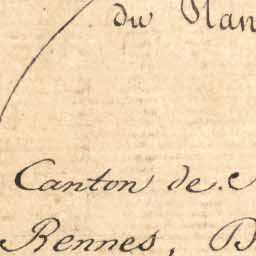 du Plan
Canton de
Rennes,